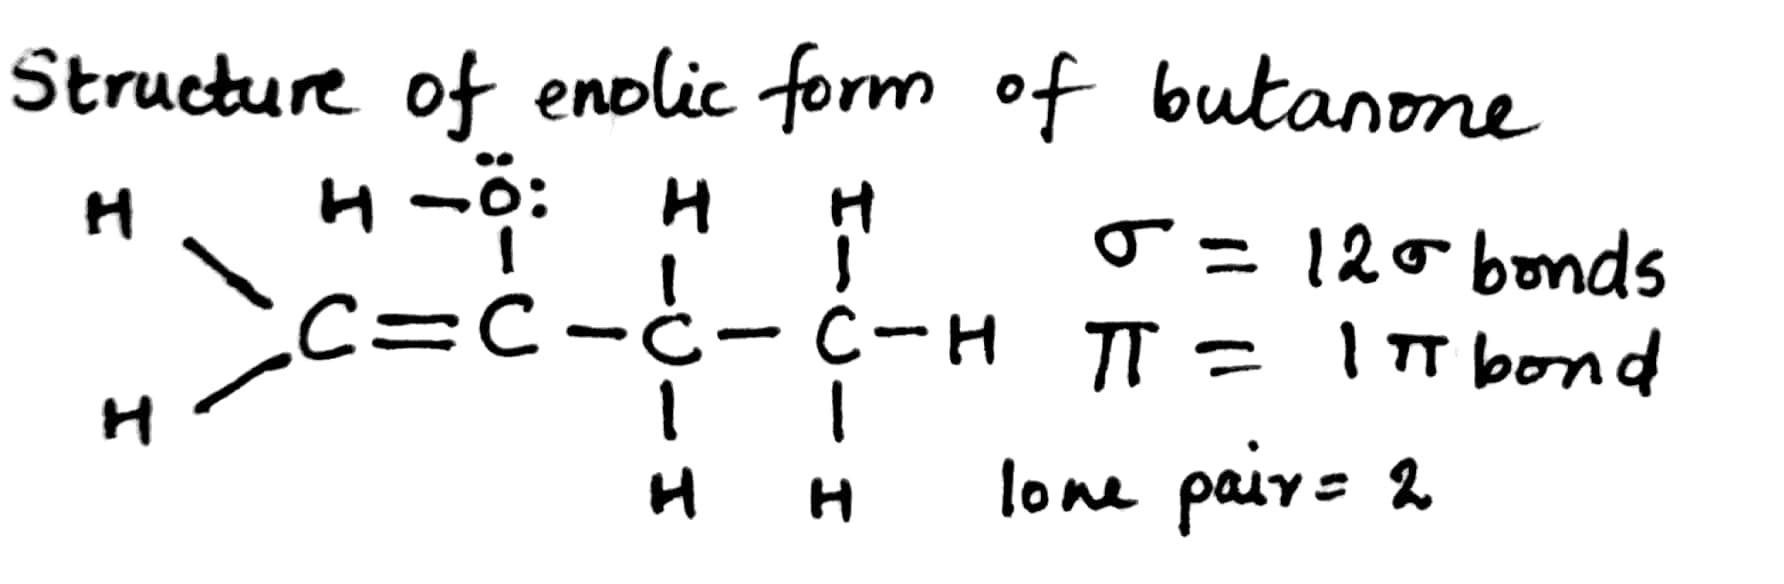 Structure of enolic form of butanone
H H – Ö: H H
C = C – C – C – H
H H H
σ = 12 σ bonds
π = 1 π bond
lone pair = 2